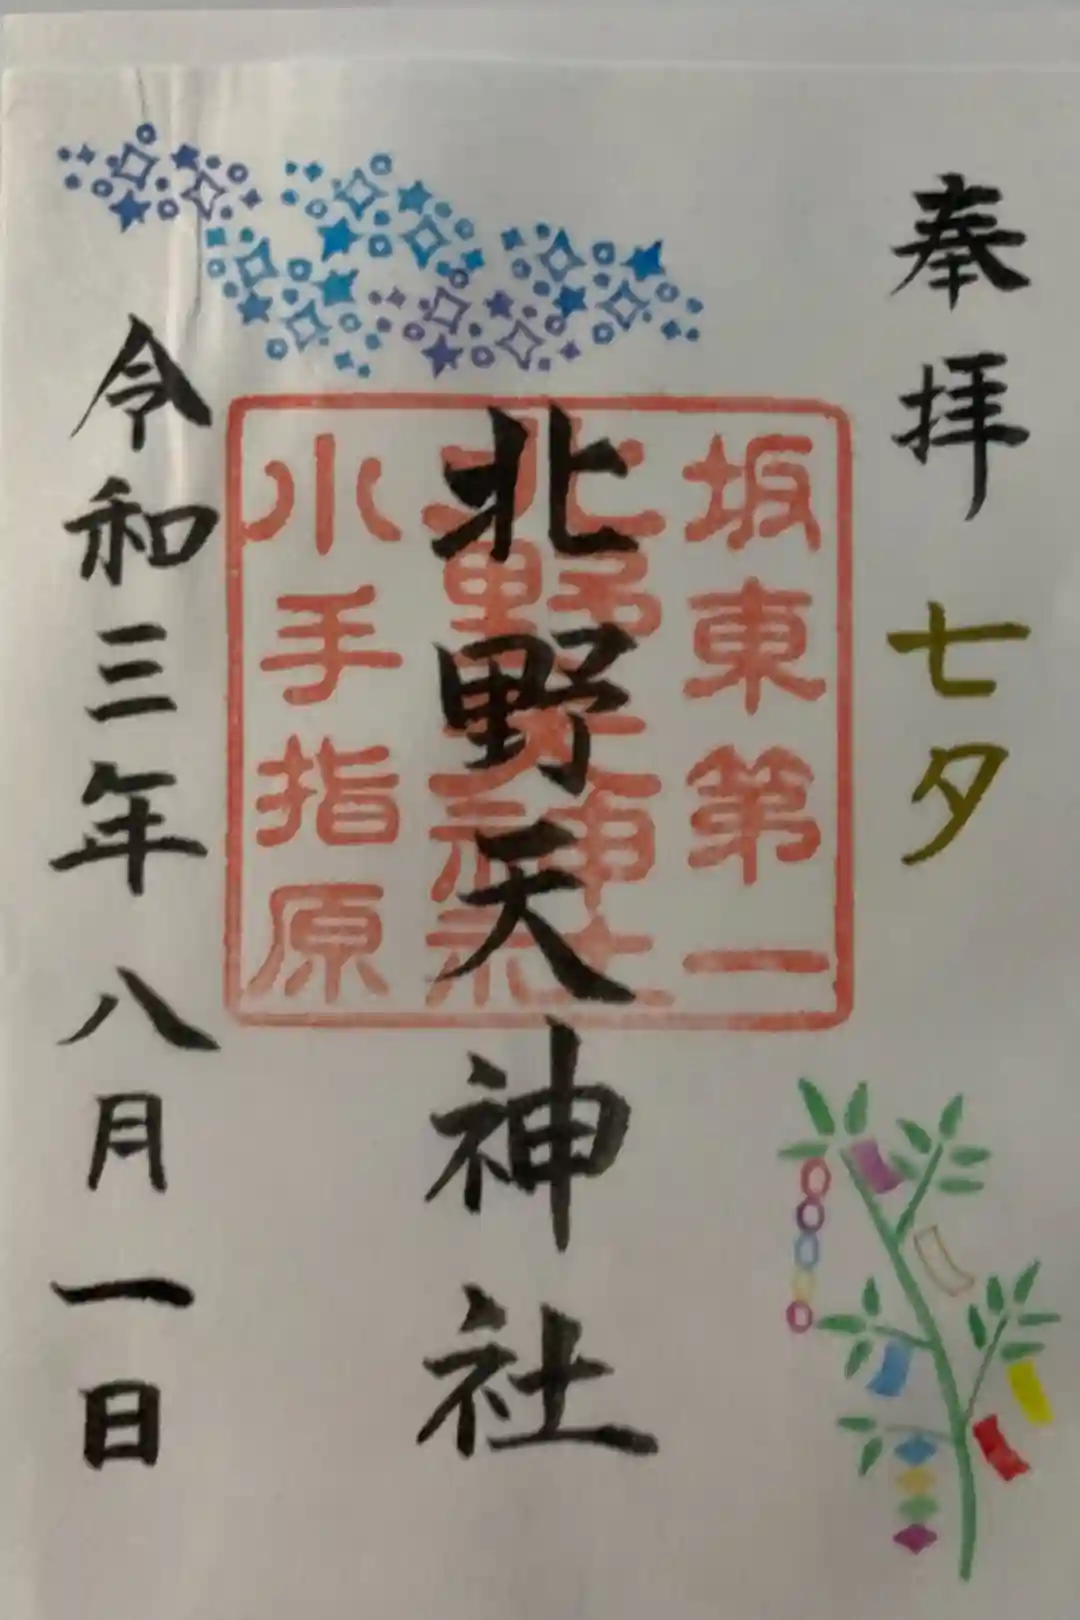 奉拝 七夕
坂東第一
北野天神社
北野天神社
小手指原
令和三年八月一日